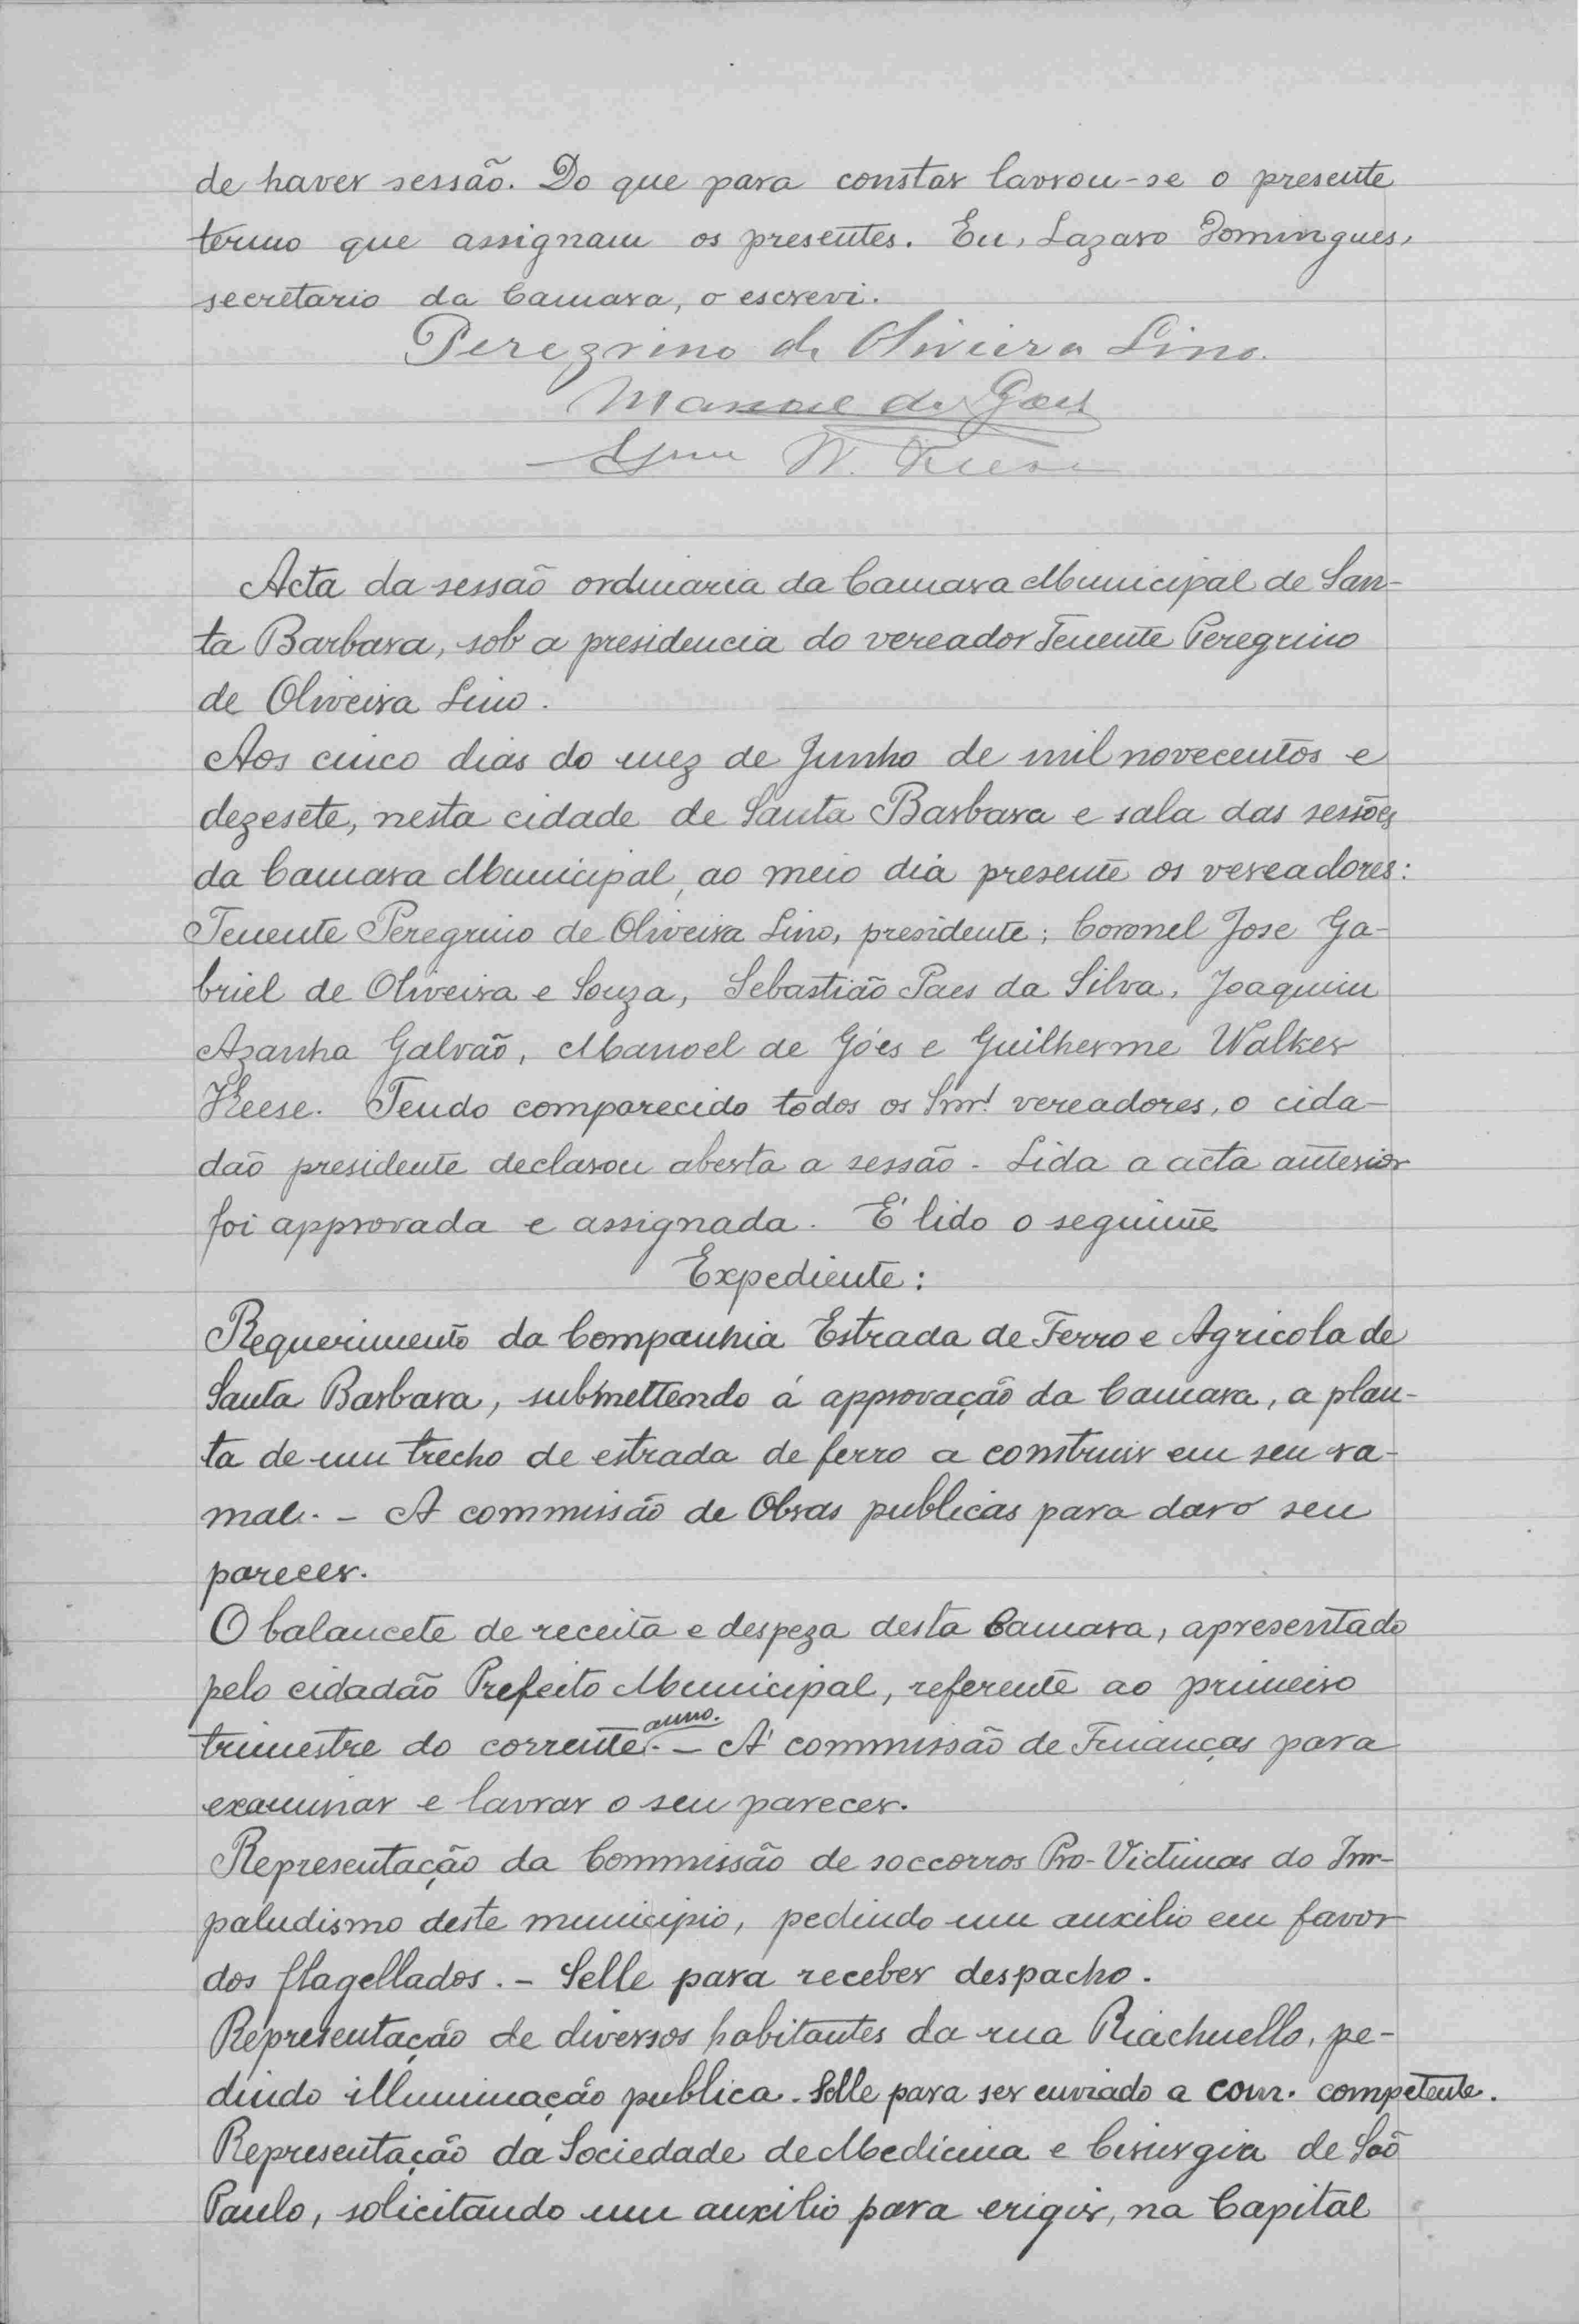 de haver sessão. Do que para constar lavrou-se o presente
termo que assignam os presentes. Eu, Lazaro Domingues,
secretario da Camara, o escrevi.
Peregrino de Oliveira Lino.
Manoel de Góes
W. Keese
Acta da sessão ordinaria da Camara Municipal de San-
ta Barbara, sob a presidencia do vereador Tenente Peregrino
de Oliveira Lino.
Aos cinco dias do mez de Junho de mil novecentos e
dezesete, nesta cidade de Santa Barbara e sala das sessões
da Camara Municipal, ao meio dia presente os vereadores:
Tenente Peregrino de Oliveira Lino, presidente; Coronel Jose Ga-
briel de Oliveira e Souza, Sebastião Paes da Silva, Joaquim
Azanha Galvão, Manoel de Góes e Guilherme Walker
Keese. Tendo comparecido todos os Snrs. vereadores, o cida-
dão presidente declarou aberta a sessão. Lida a acta anterior
foi approvada e assignada. É lido o seguinte
Expediente:
Requerimento da Companhia Estrada de Ferro e Agricola de
Santa Barbara, submettendo á approvação da Camara, a plan-
ta de um trecho de estrada de ferro a construir em seu ra-
mal. - A commissão de Obras publicas para dar o seu
parecer.
O balancete de receita e despeza desta Camara, apresentado
pelo cidadão Prefeito Municipal, referente ao primeiro
trimestre do corrente anno. - A' commissão de Finanças para
examinar e lavrar o seu parecer.
Representação da Commissão de soccorros Pro-Victimas do Im-
paludismo deste municipio, pedindo um auxilio em favor
dos flagellados. - Selle para receber despacho.
Representação de diversos habitantes da rua Riachuello, pe-
dindo illuminação publica. Selle para ser enviado a com. competente.
Representação da Sociedade de Medicina e Cirurgia de São
Paulo, solicitando um auxilio para erigir, na Capital